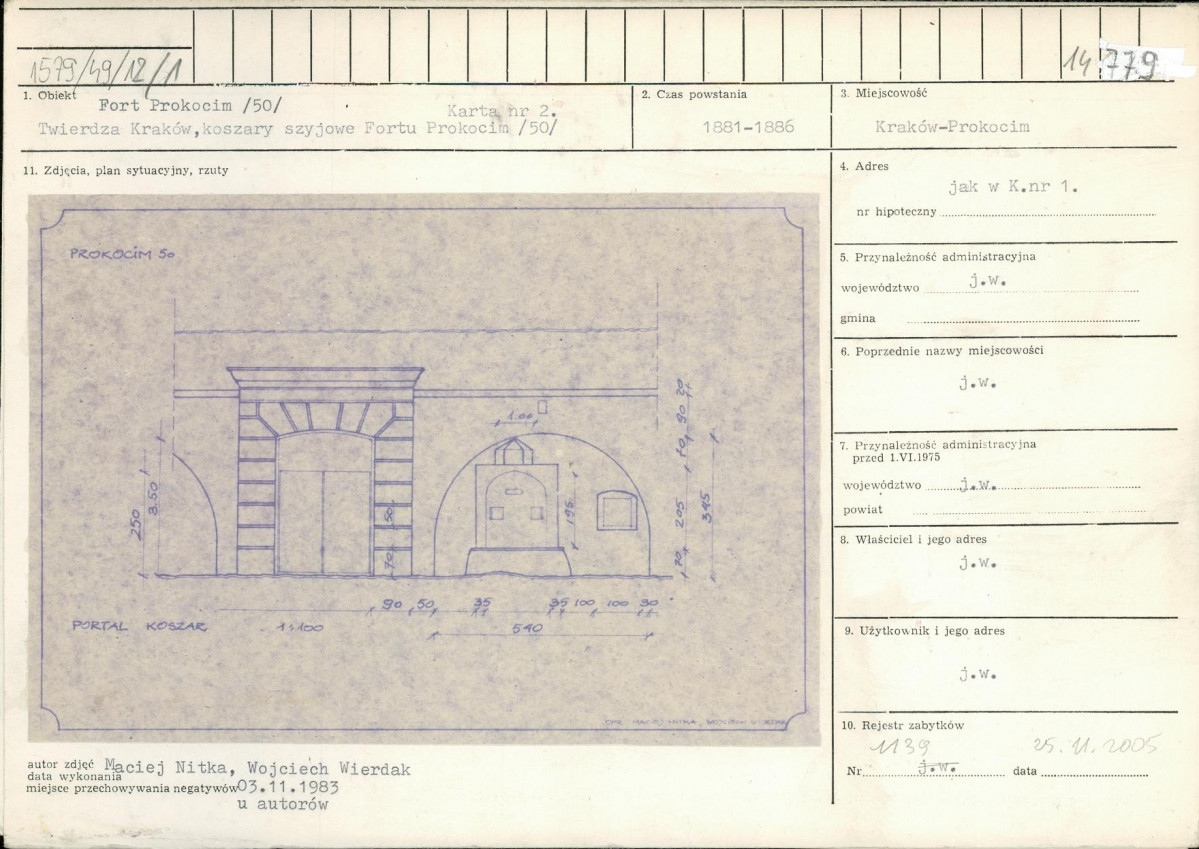 1579/49/12/1
14 779
1. Obiekt
Fort Prokocim /50/
Karta nr 2.
Twierdza Kraków,koszary szyjowe Fortu Prokocim /50/
2. Czas powstania
1881-1886
3. Miejscowość
Kraków-Prokocim
11. Zdjęcia, plan sytuacyjny, rzuty
PROKOCIM 50
1.00
250
3.50
50
70
195
20
90
70
205
70
345
90 50 35 35 100 100 30
540
PORTAL KOSZAR 1:100
OPR. MACIEJ NITKA, WOJCIECH WIERDAK
autor zdjęć Maciej Nitka, Wojciech Wierdak
data wykonania
miejsce przechowywania negatywów 03.11.1983
u autorów
4. Adres
jak w K.nr 1.
nr hipoteczny
5. Przynależność administracyjna
województwo j.w.
gmina
6. Poprzednie nazwy miejscowości
j.w.
7. Przynależność administracyjna
przed 1.VI.1975
województwo j.w.
powiat
8. Właściciel i jego adres
j.w.
9. Użytkownik i jego adres
j.w.
10. Rejestr zabytków
1139 25.11.2005
Nr j.w. data